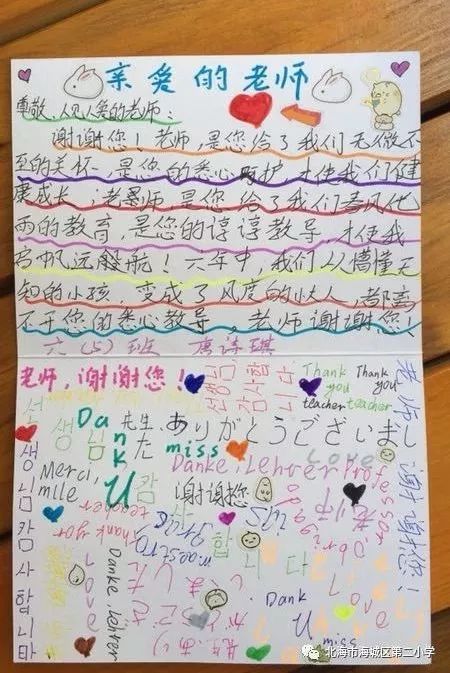 亲爱的老师
尊敬、人见人爱的老师：
谢谢您！老师，是您给了我们无微不
至的关怀，是您的悉心呵护，才使我们健
康成长；老师，是您给了我们春风化
雨的教育，是您的谆谆教导，才使我
们扬帆远航！六年中，我们从懵懂无
知的小孩，变成了风度的小大人，都离
不开您的悉心教导，老师谢谢您、
六（5）班 唐诗琪
老师，谢谢您！
선생님
감사합
니다
Thank you teacher
Thank you teacher
老师 谢谢您！
선생님 감사합니다
Dank U
先生、ありがとうございまし
た
miss
Love
Merci, mille
Danke, Lehrer
Professor
谢谢您
teacher
Thank you
maestro
Danke, Lehrer
Dank U
miss
北海市海城区第二小学